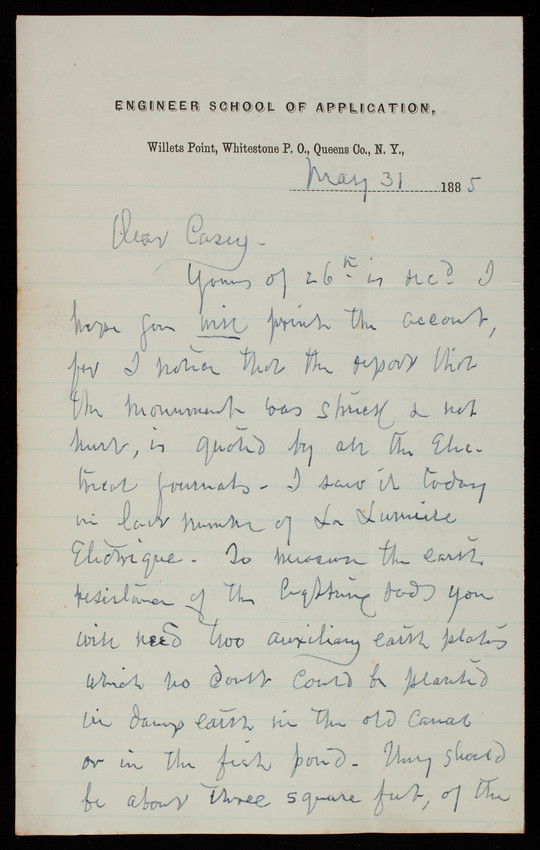 ENGINEER SCHOOL OF APPLICATION,
Willets Point, Whitestone P. O., Queens Co., N. Y.,
May 31 1885
Dear Casey -
Yours of 26th is recd I
hope you will print the account,
for I notice that the report that
the monument was struck & not
hurt, is quoted by all the Elec-
trical journals - I saw it today
in last number of La Lumière
Electrique - To measure the earth
resistance of the lightning rods you
will need two auxiliary earth plates
which no doubt could be planted
in damp earth in the old canal
or in the fish pond - They should
be about three square feet, of the